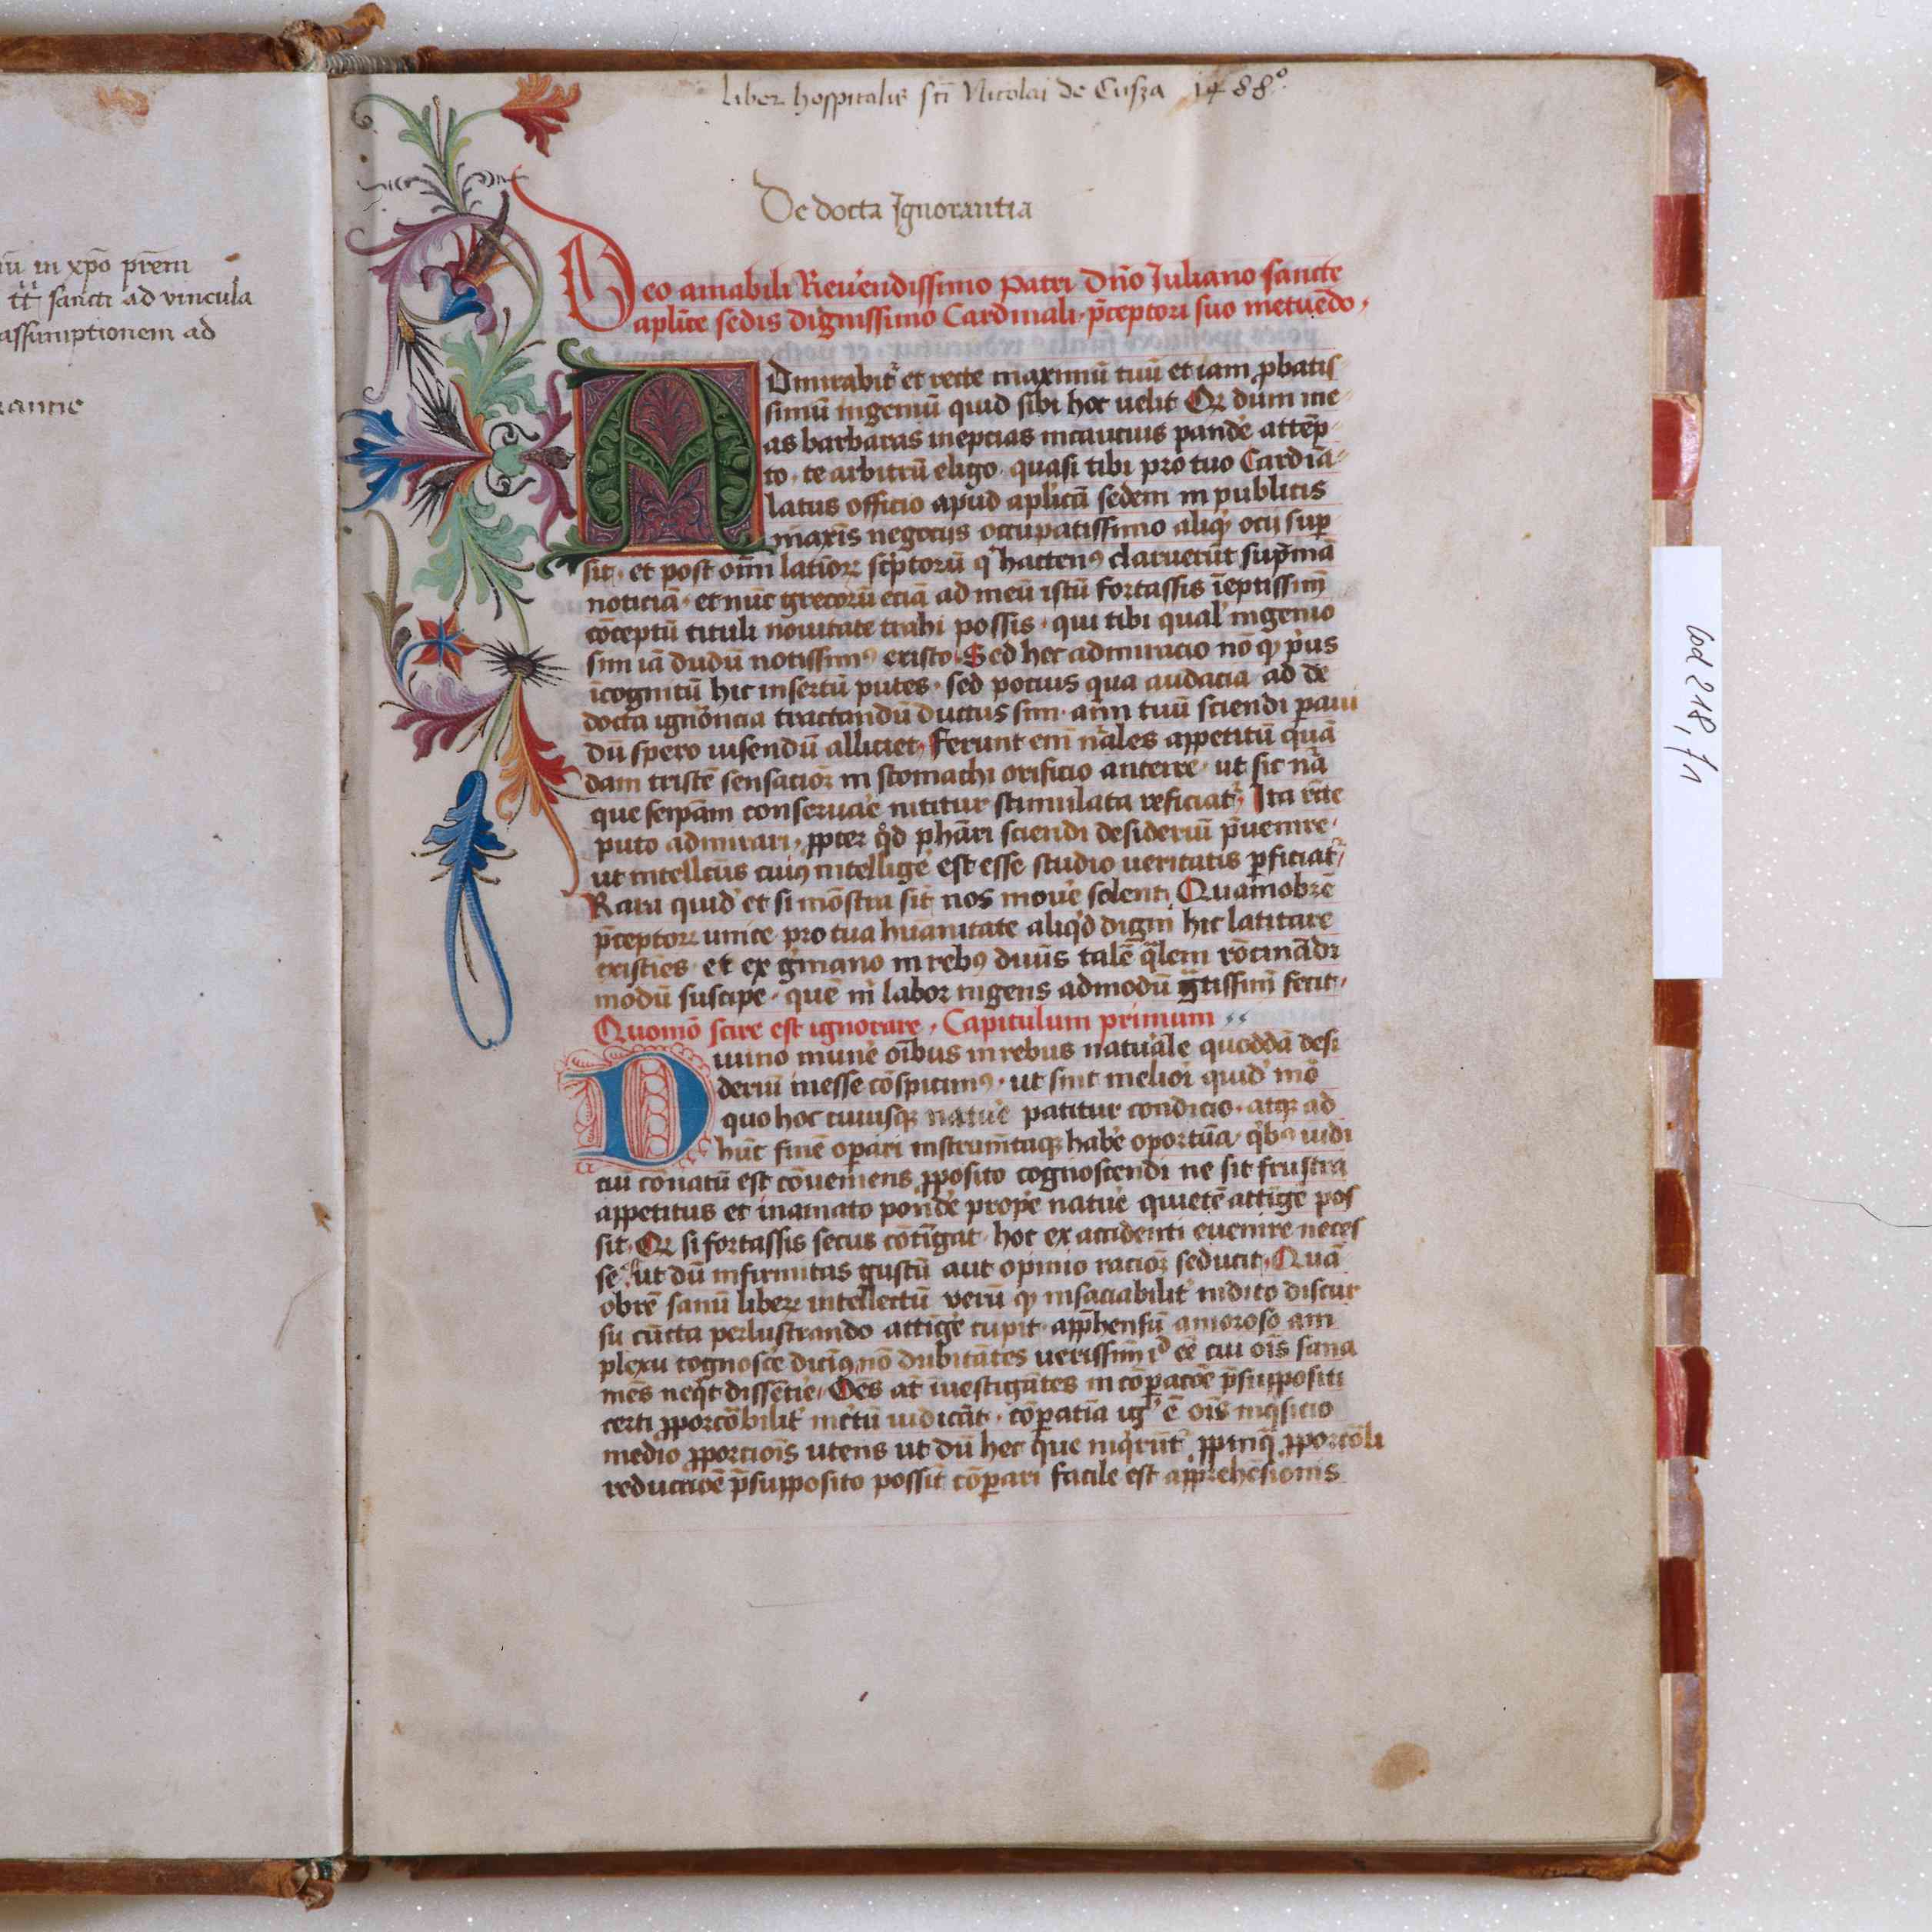 ū in xpō prēm
tt̄ sancti ad vincula
assumptionem ad
liber hospitalis sc̄i Nicolai de Cusza 1488º
De docta Ignorantia
Deo amabili Reuēendissimo Patri Dn̄o Iuliano sancte
aplīce sedis dignissimo Cardinali, p̄ceptori suo metuēdo,
Admirabit᷑ et recte maximū tuū et iam ꝓbatis
simū ingeniū quid sibi hoc uelit Qꝛ dum me
as barbaras ineptias incautius pandē attēp
to, te arbitrū eligo, quasi tibi pro tuo Cardiā
latus officio apud aplīcā sedem in publicis
maxīs negocijs occupatissimo aliqͥ ocij suꝑ
sit, et post oīm latinoꝝ sc̄ptorū qͥ hactenꝰ claruerūt sup̄mā
noticiā, et nūc grecorū eciā ad meū istū fortassis īeptissim̄
cōceptū tituli nouitate trahi possis, qui tibi qual' ingenio
sim iā dudū notissimꝰ existo, Sed hec admiracio nō qͥ p̓us
īcognitū hic insertū putes, sed pocius qua audacia ad de
docta ignōncia tractandū ductus sim, aīm tuū sciendi ꝑaui
dū spero uisendū alliciet, Ferunt em̄ nāles appetitū quā
dam tristē sensacioꝫ in stomachi orificio anteire, ut sic nā
que seip̄am conseruāe nititur stimulata reficiat᷑, Ita rc̄te
puto admirari, ꝓpter qͦd ph̄ari sciendi desideriū p̄uenire,
ut intellc̄us cuiꝰ intelligē est esse studio ueritatis ꝑficiat᷑,
Rara quid' et si mōstra sit nos mouē solent, Quamobrē
p̄ceptoꝝ unice pro tua hūanitate aliqͥd digni hic latitare
existīes, et ex gͥmano in rebꝰ diuīs talē qͣlem rōcinādi
modū suscipe, quē m̄ labor ingens admodū gͣtissim̄ fecit,
Quomō scire est ignorare, Capitulum primum
Diuino munē oībus in rebus natuāle quoddā desi
deriū inesse cōspicimꝰ, ut sint meliori quid' mō
quo hoc cuiusqꝫ natuē patitur condicio, atqꝫ ad
hūc finē operari instrum̄taqꝫ habē oportūa, qͥbꝰ iudi
ciū cōnatū est cōueniens ꝓposito cognoscendi ne sit frustra
appetitus et in amato pondē prop̄e natuē quietē attīgē pos
sit, Qꝛ si fortassis secus cōtīgat, hoc ex accidenti euenire neces
se ē ut dū infirmitas gustū aut opinio racioꝫ seducit, Quā
obrē sanū liberꝝ intellectū verū qͥ insaciabilit' indito discur
su cūcta perlustrando attīgē cupit, app̄hensū amoroso am
plexu cognoscē dicimꝰ, nō dubitātes uerissim̄ id ēē cui oīs sana
mēs neqͥt dissētiē, Oēs at̄ īuestigātes in cōꝑacōē p̄suppositi
certi ꝓporcōbilit' īcētū iudicāt, cōꝑatīa ig' ē oīs inqͥsicio
medio ꝓporciōis utens ut dū hec que inqͥrūt᷑ ꝓpinqͣ ꝓporcōli
reductiōē p̄supposito possīt cōꝑari facile est app̄rehēsionis
Cod 218, f 1